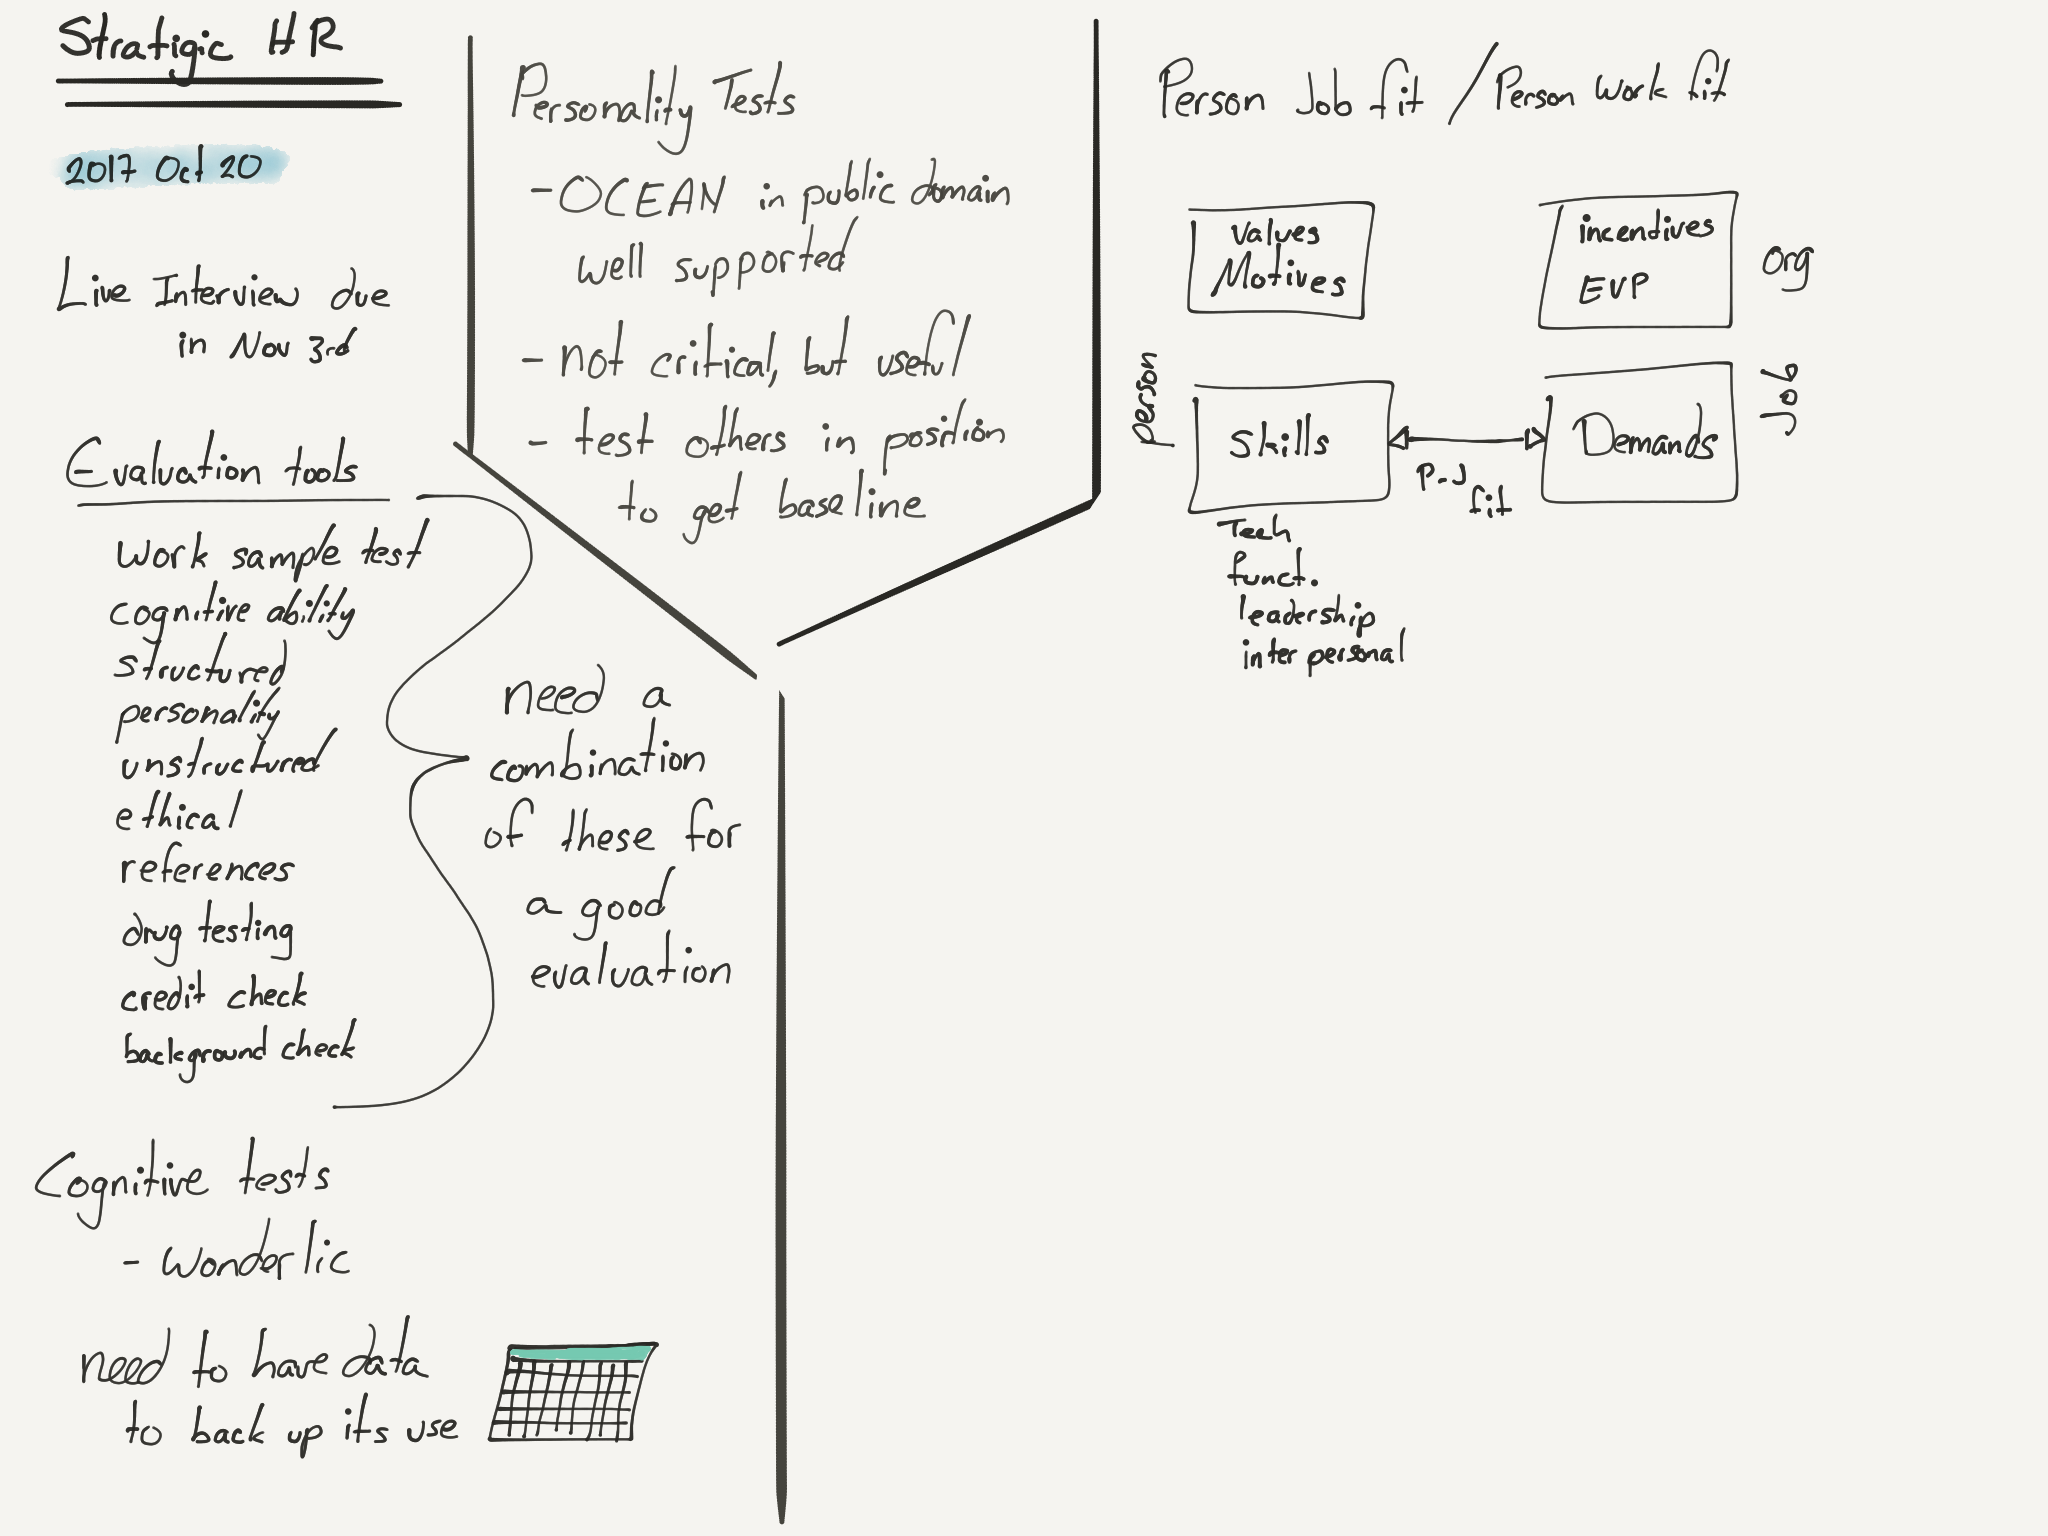 Stratigic HR
2017 Oct 20
Live Interview due
in Nov 3rd
Evaluation tools
work sample test
cognitive ability
structured
personality
unstructured
ethical
references
drug testing
credit check
background check
need a
combination
of these for
a good
evaluation
Cognitive tests
- Wonderlic
need to have data
to back up its use
Personality Tests
- OCEAN in public domain
well supported
- not critical, but useful
- test others in position
to get baseline
Person Job fit / Person Work fit
Values
Motives
incentives
EVP
org
Person
Skills
P-J
fit
Demands
Job
Tech
funct.
leadership
interpersonal